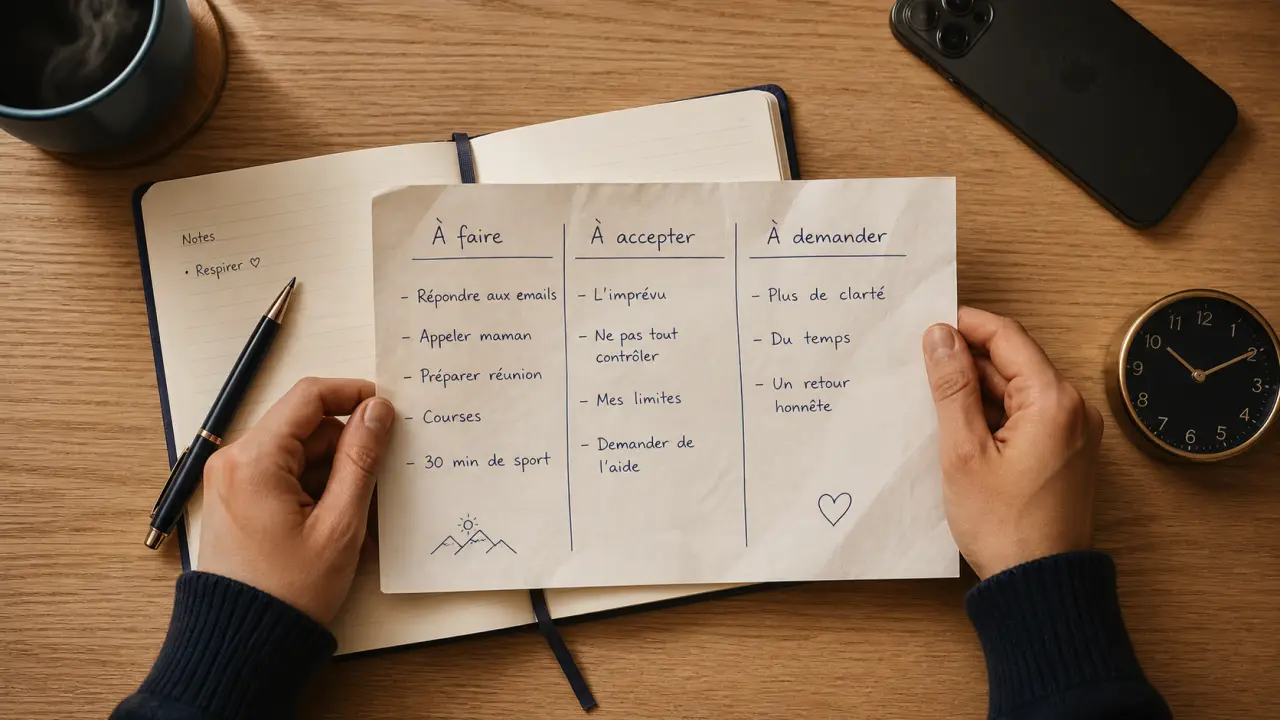 Notes
• Respirer ♡
À faire
– Répondre aux emails
– Appeler maman
– Préparer réunion
– Courses
– 30 min de sport
À accepter
– L'imprévu
– Ne pas tout
contrôler
– Mes limites
– Demander de
l'aide
À demander
– Plus de clarté
– Du temps
– Un retour
honnête
12
1
2
3
4
5
6
7
8
9
10
11